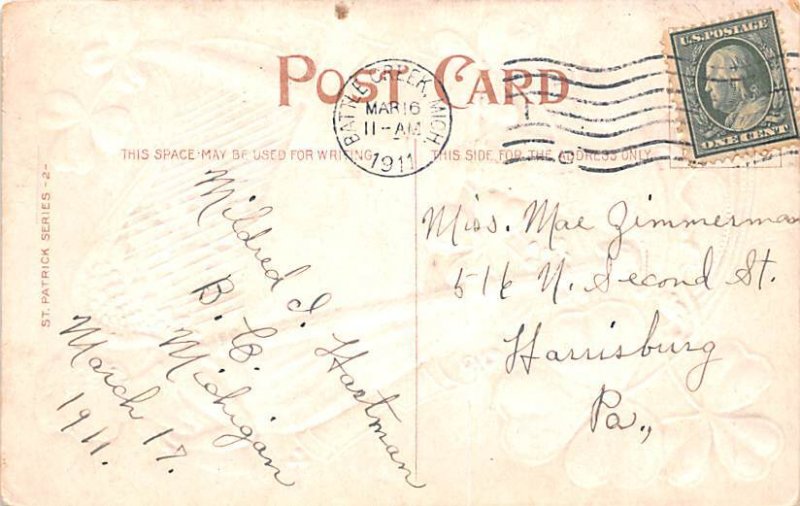 POST CARD
BATTLE CREEK, MICH.
MAR 16
11-AM
1911
U.S. POSTAGE
ONE CENT
THIS SPACE MAY BE USED FOR WRITING
THIS SIDE FOR THE ADDRESS ONLY.
ST. PATRICK SERIES -2-
Mildred I. Hartman
B. C.
Michigan
March 17.
1911.
Miss. Mae Zimmerman
516 N. Second St.
Harrisburg
Pa.,